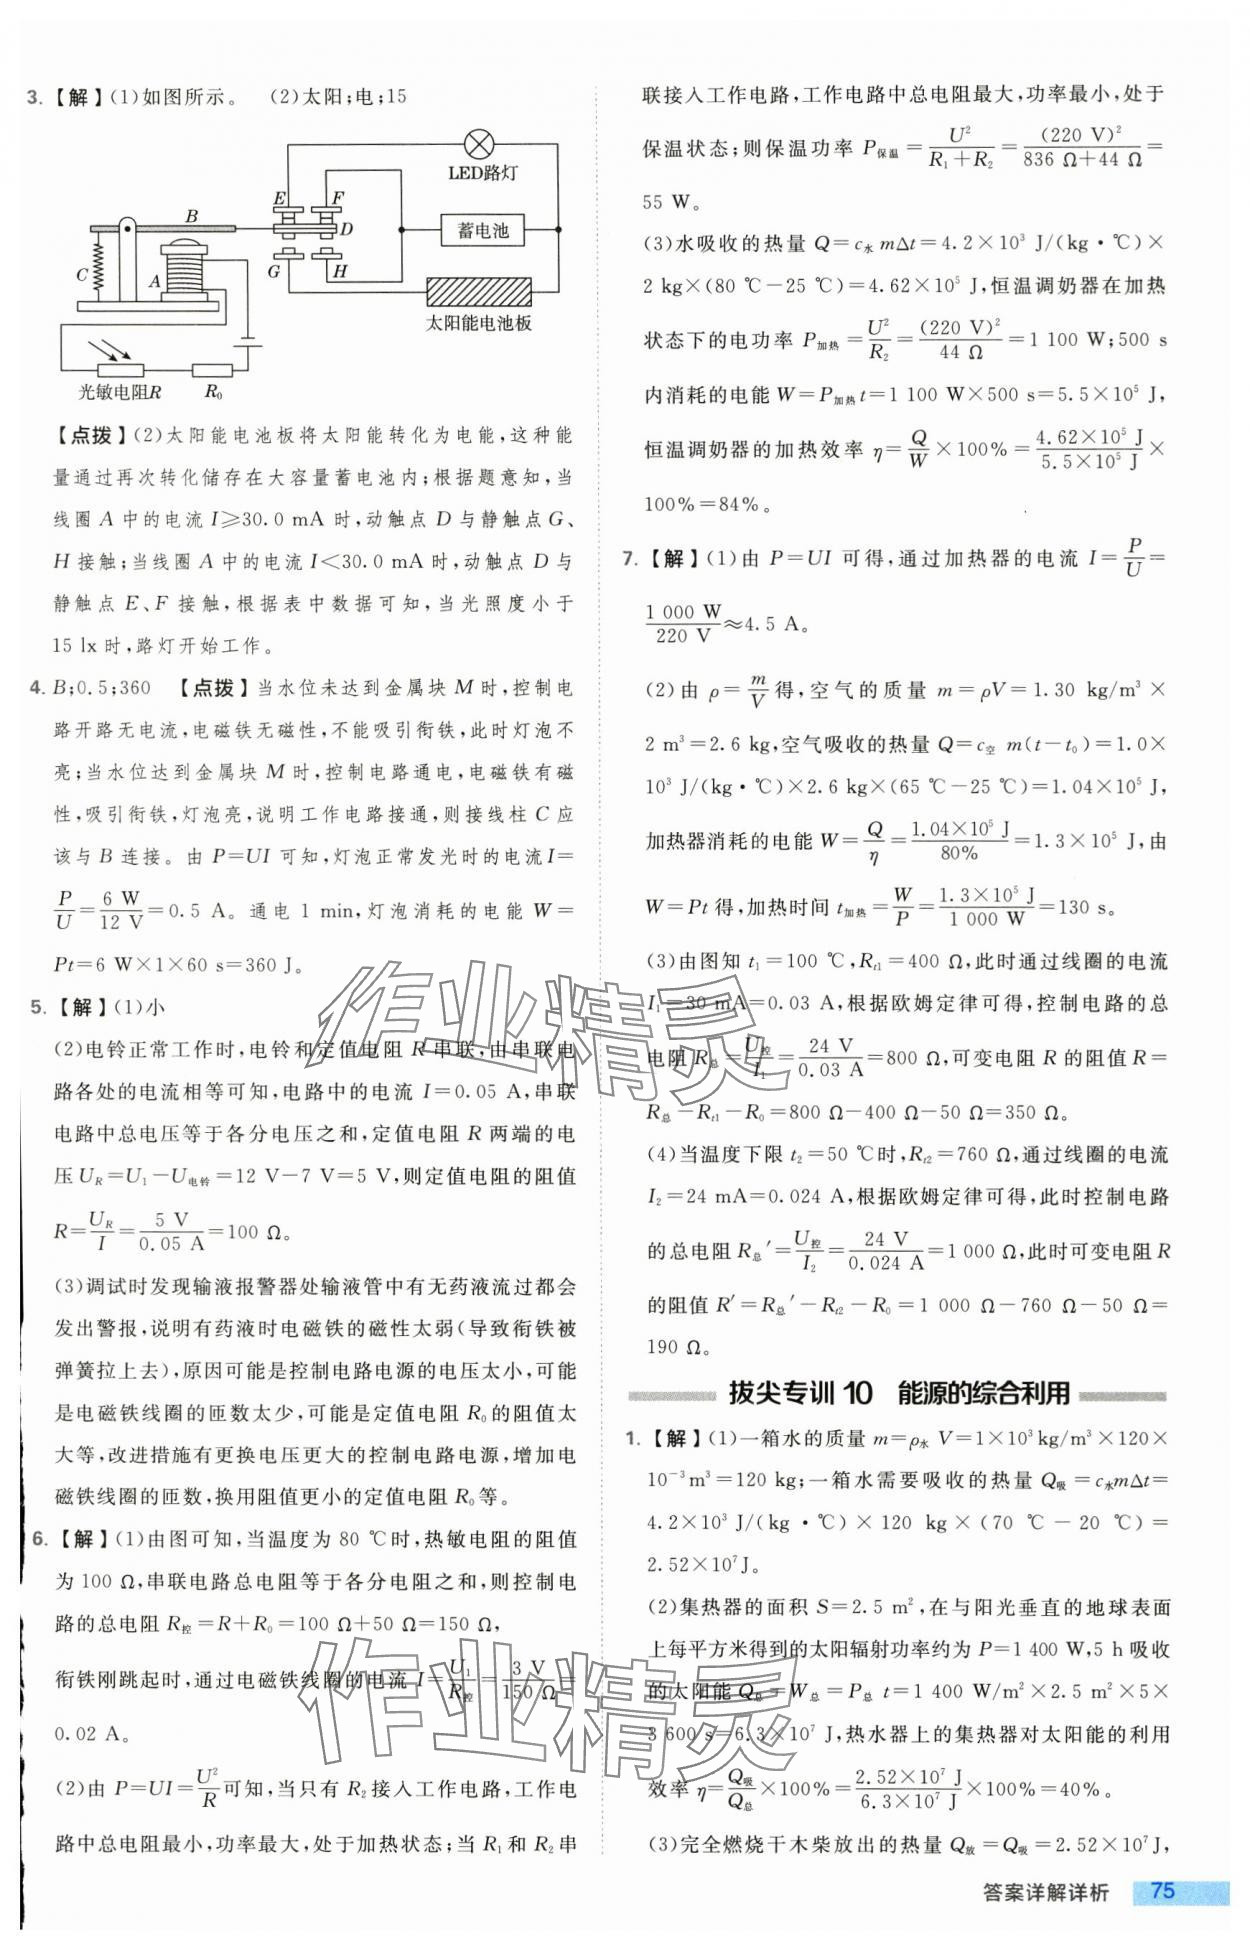 3.【解】(1)如图所示。 (2)太阳;电;15
LED路灯
E F
B D
蓄电池
C A G H
太阳能电池板
光敏电阻R R₀
【点拨】(2)太阳能电池板将太阳能转化为电能,这种能
量通过再次转化储存在大容量蓄电池内;根据题意知,当
线圈 A 中的电流 I≥30.0 mA 时,动触点 D 与静触点 G、
H 接触;当线圈 A 中的电流 I<30.0 mA 时,动触点 D 与
静触点 E、F 接触,根据表中数据可知,当光照度小于
15 lx 时,路灯开始工作。
4. B;0.5;360 【点拨】当水位未达到金属块 M 时,控制电
路开路无电流,电磁铁无磁性,不能吸引衔铁,此时灯泡不
亮;当水位达到金属块 M 时,控制电路通电,电磁铁有磁
性,吸引衔铁,灯泡亮,说明工作电路接通,则接线柱 C 应
该与 B 连接。由 P=UI 可知,灯泡正常发光时的电流 I=
P/U=6 W/12 V=0.5 A。通电 1 min,灯泡消耗的电能 W=
Pt=6 W×1×60 s=360 J。
5.【解】(1)小
(2)电铃正常工作时,电铃和定值电阻 R 串联,由串联电
路各处的电流相等可知,电路中的电流 I=0.05 A,串联
电路中总电压等于各分电压之和,定值电阻 R 两端的电
压 U_R=U₁-U电铃=12 V-7 V=5 V,则定值电阻的阻值
R=U_R/I=5 V/0.05 A=100 Ω。
(3)调试时发现输液报警器处输液管中有无药液流过都会
发出警报,说明有药液时电磁铁的磁性太弱(导致衔铁被
弹簧拉上去),原因可能是控制电路电源的电压太小,可能
是电磁铁线圈的匝数太少,可能是定值电阻 R₀ 的阻值太
大等,改进措施有更换电压更大的控制电路电源,增加电
磁铁线圈的匝数,换用阻值更小的定值电阻 R₀ 等。
6.【解】(1)由图可知,当温度为 80 ℃时,热敏电阻的阻值
为 100 Ω,串联电路总电阻等于各分电阻之和,则控制电
路的总电阻 R控=R+R₀=100 Ω+50 Ω=150 Ω,
衔铁刚跳起时,通过电磁铁线圈的电流 I=U₁/R控=3 V/150 Ω=
0.02 A。
(2)由 P=UI=U²/R可知,当只有 R₂ 接入工作电路,工作电
路中总电阻最小,功率最大,处于加热状态;当 R₁ 和 R₂ 串
联接入工作电路,工作电路中总电阻最大,功率最小,处于
保温状态;则保温功率 P保温=U²/(R₁+R₂)=(220 V)²/(836 Ω+44 Ω)=
55 W。
(3)水吸收的热量 Q=c水 mΔt=4.2×10³ J/(kg·℃)×
2 kg×(80 ℃-25 ℃)=4.62×10⁵ J,恒温调奶器在加热
状态下的电功率 P加热=U²/R₂=(220 V)²/44 Ω=1 100 W;500 s
内消耗的电能 W=P加热t=1 100 W×500 s=5.5×10⁵ J,
恒温调奶器的加热效率 η=Q/W×100%=4.62×10⁵ J/5.5×10⁵ J×
100%=84%。
7.【解】(1)由 P=UI 可得,通过加热器的电流 I=P/U=
1 000 W/220 V≈4.5 A。
(2)由 ρ=m/V得,空气的质量 m=ρV=1.30 kg/m³×
2 m³=2.6 kg,空气吸收的热量 Q=c空 m(t-t₀)=1.0×
10³ J/(kg·℃)×2.6 kg×(65 ℃-25 ℃)=1.04×10⁵ J,
加热器消耗的电能 W=Q/η=1.04×10⁵ J/80%=1.3×10⁵ J,由
W=Pt 得,加热时间 t加热=W/P=1.3×10⁵ J/1 000 W=130 s。
(3)由图知 t₁=100 ℃,R_t1=400 Ω,此时通过线圈的电流
I₁=30 mA=0.03 A,根据欧姆定律可得,控制电路的总
电阻 R总=U控/I₁=24 V/0.03 A=800 Ω,可变电阻 R 的阻值 R=
R总-R_t1-R₀=800 Ω-400 Ω-50 Ω=350 Ω。
(4)当温度下限 t₂=50 ℃时,R_t2=760 Ω,通过线圈的电流
I₂=24 mA=0.024 A,根据欧姆定律可得,此时控制电路
的总电阻 R总′=U控/I₂=24 V/0.024 A=1 000 Ω,此时可变电阻 R
的阻值 R′=R总′-R_t2-R₀=1 000 Ω-760 Ω-50 Ω=
190 Ω。
拔尖专训 10 能源的综合利用
1.【解】(1)一箱水的质量 m=ρ水 V=1×10³kg/m³×120×
10⁻³m³=120 kg;一箱水需要吸收的热量 Q吸=c水mΔt=
4.2×10³ J/(kg·℃)×120 kg×(70 ℃-20 ℃)=
2.52×10⁷J。
(2)集热器的面积 S=2.5 m²,在与阳光垂直的地球表面
上每平方米得到的太阳辐射功率约为 P=1 400 W,5 h 吸收
的太阳能 Q总=W总=P总 t=1 400 W/m²×2.5 m²×5×
3 600 s=6.3×10⁷ J,热水器上的集热器对太阳能的利用
效率 η=Q吸/Q总×100%=2.52×10⁷ J/6.3×10⁷ J×100%=40%。
(3)完全燃烧干木柴放出的热量 Q放=Q吸=2.52×10⁷J,
答案详解详析 75
作业精灵
作业精灵